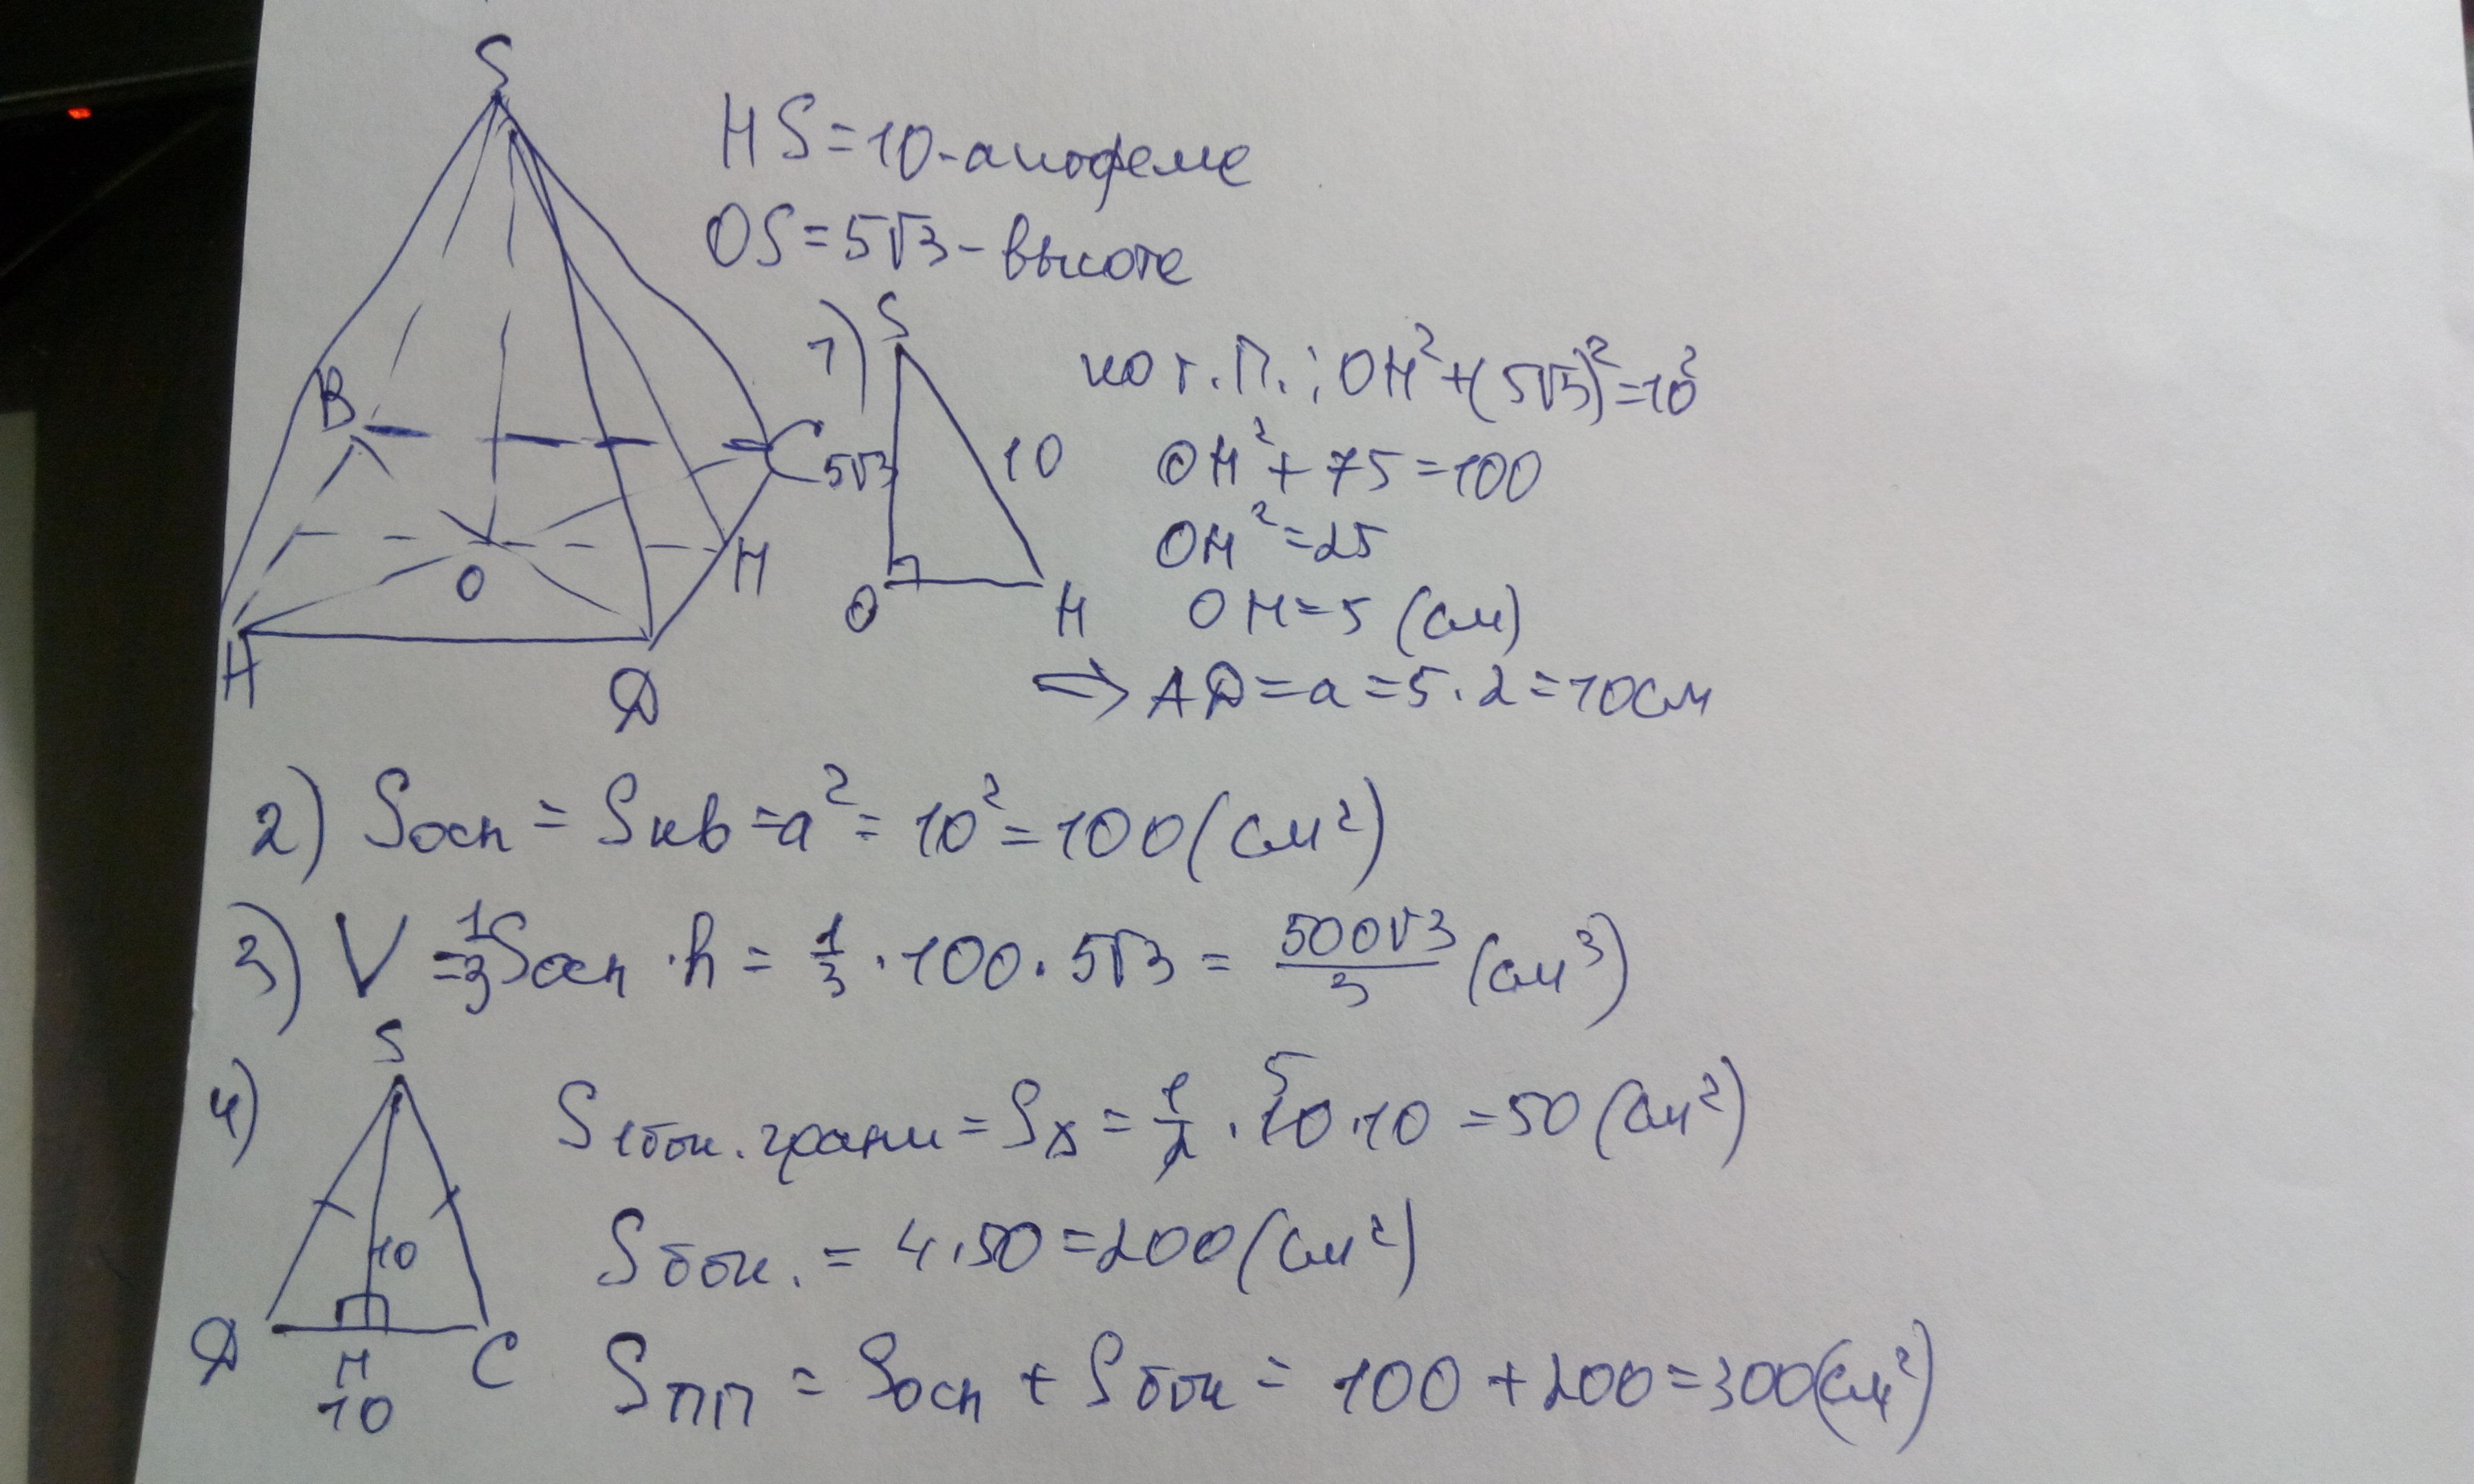 S
HS=10-апофема
OS=5√3-высота
B
C
O
H
A
D
1)
S
5√3
10
O
H
по т.П.: OH²+(5√3)²=10²
OH²+75=100
OH²=25
OH=5 (см)
⇒ AD=a=5·2=10см
2) Sосн = Sкв=a²=10²=100(см²)
3) V=1/3Sосн·h=1/3·100·5√3=500√3/3 (см³)
4)
S
10
D
H
C
10
S1бок.грани=S∆=1/2·10·10=50(см²)
5
Sбок.=4·50=200(см²)
Sпп=Sосн+Sбок=100+200=300(см²)